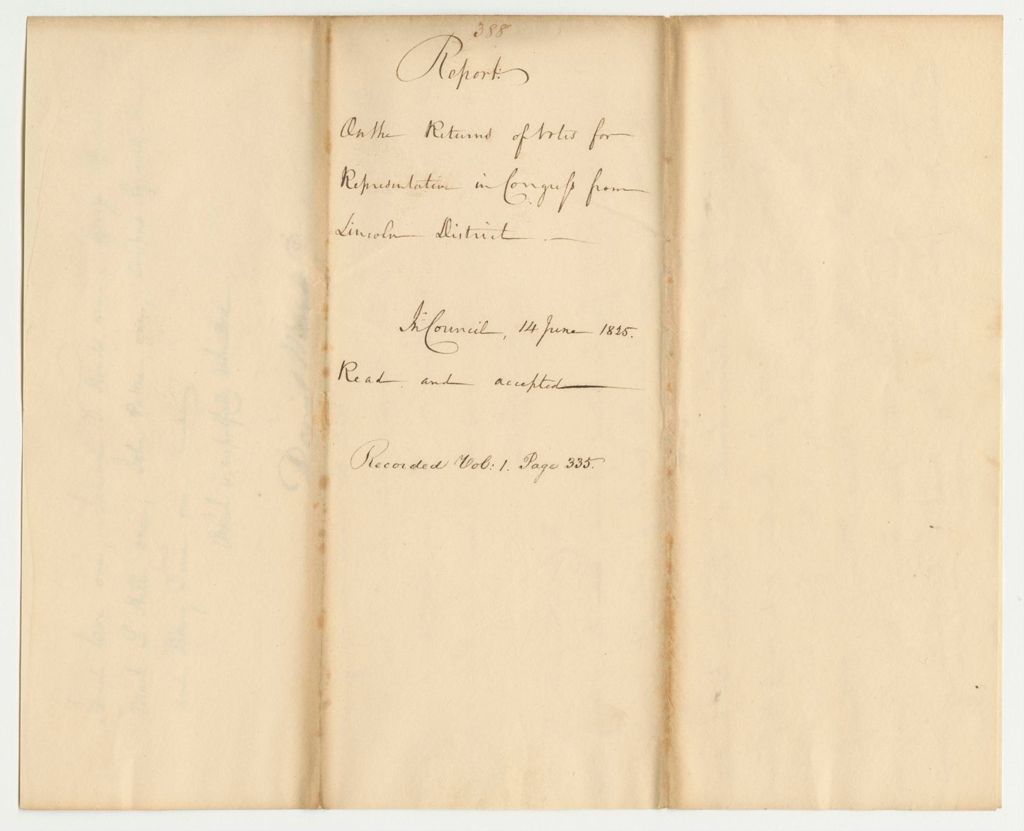 388
Report:
On the Returns of Votes for
Representative in Congress from
Lincoln District.
In Council, 14 June 1825.
Read and accepted
Recorded Vol: 1. Page 335.